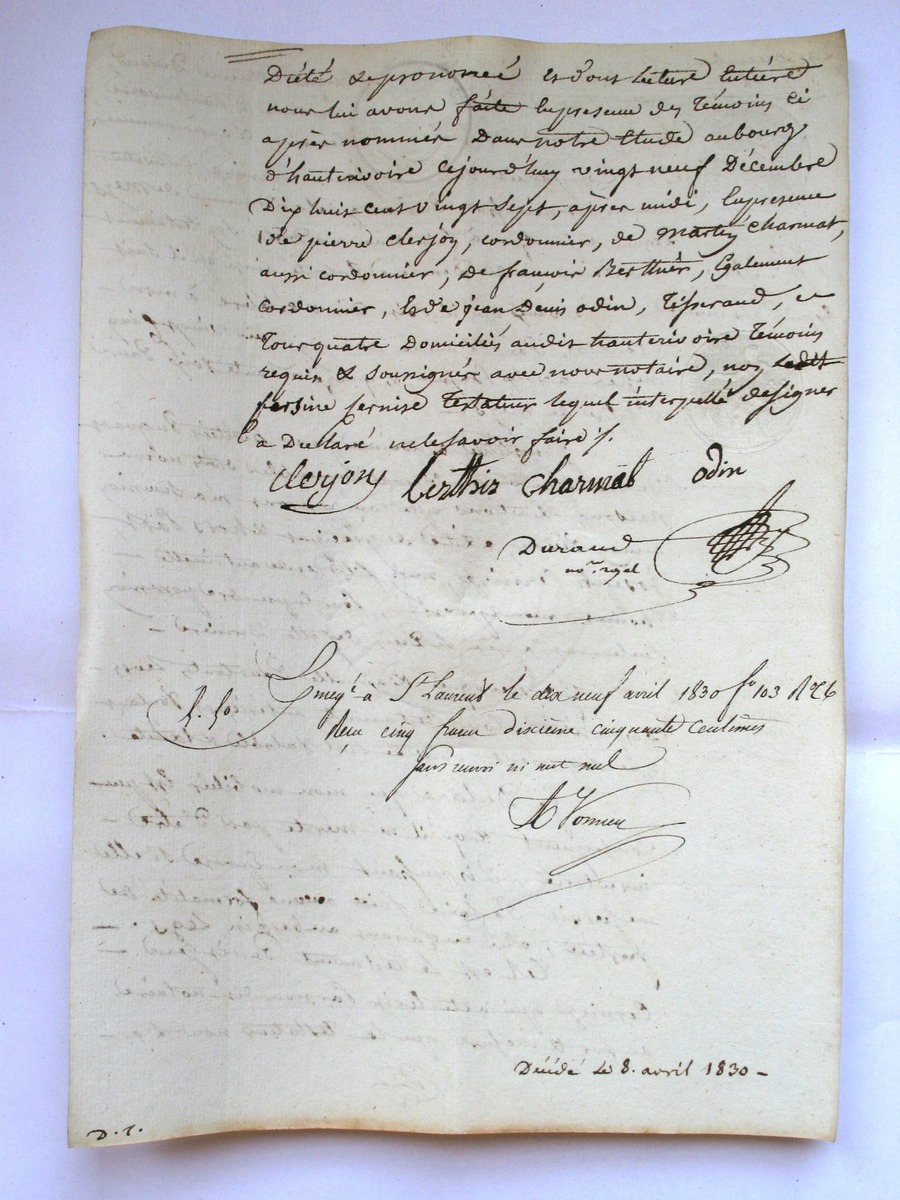 Dicté & prononcé et dont lecture entière
nous lui avons faite en presence des témoins ci
après nommés dans notre Etude au bourg
d'hauterivoire cejourd'huy vingt neuf Décembre
Dix huit cent vingt Sept, après midi, en presence
de pierre clerjon, cordonnier, de charmat,
aussi cordonnier, de françois Berthier, Egalement
cordonnier, & de jean Denis odin, Tisserand,
Tous quatre Domiciliés audit hauterivoire Témoins
requis & soussignés avec nous notaire, non ledit
testateur lequel interpellé de signer
a Declaré ne le savoir faire /.
clerjon berthier charmat odin
Durand
no.re royal
à St Laurent le dix neuf avril 1830 fo 103
Reçu cinq francs dixième cinquante Centimes
sans renvoi ni mot nul
Décédé le 8. avril 1830 -
D. t.